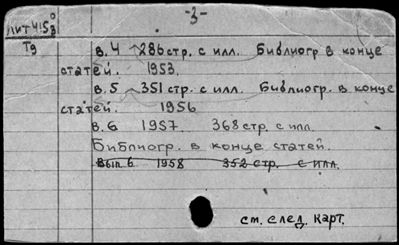 -3-
лит 415
Тд
в.4 286 стр. с илл. Библиогр. в конце
статей. 1953.
в.5 351 стр. с илл. Библиогр. в конце
статей. 1956
в.6 1957. 368 стр. с илл.
Библиогр. в конце статей.
Вып 6 1958 352 стр. с илл.
см. след. карт.